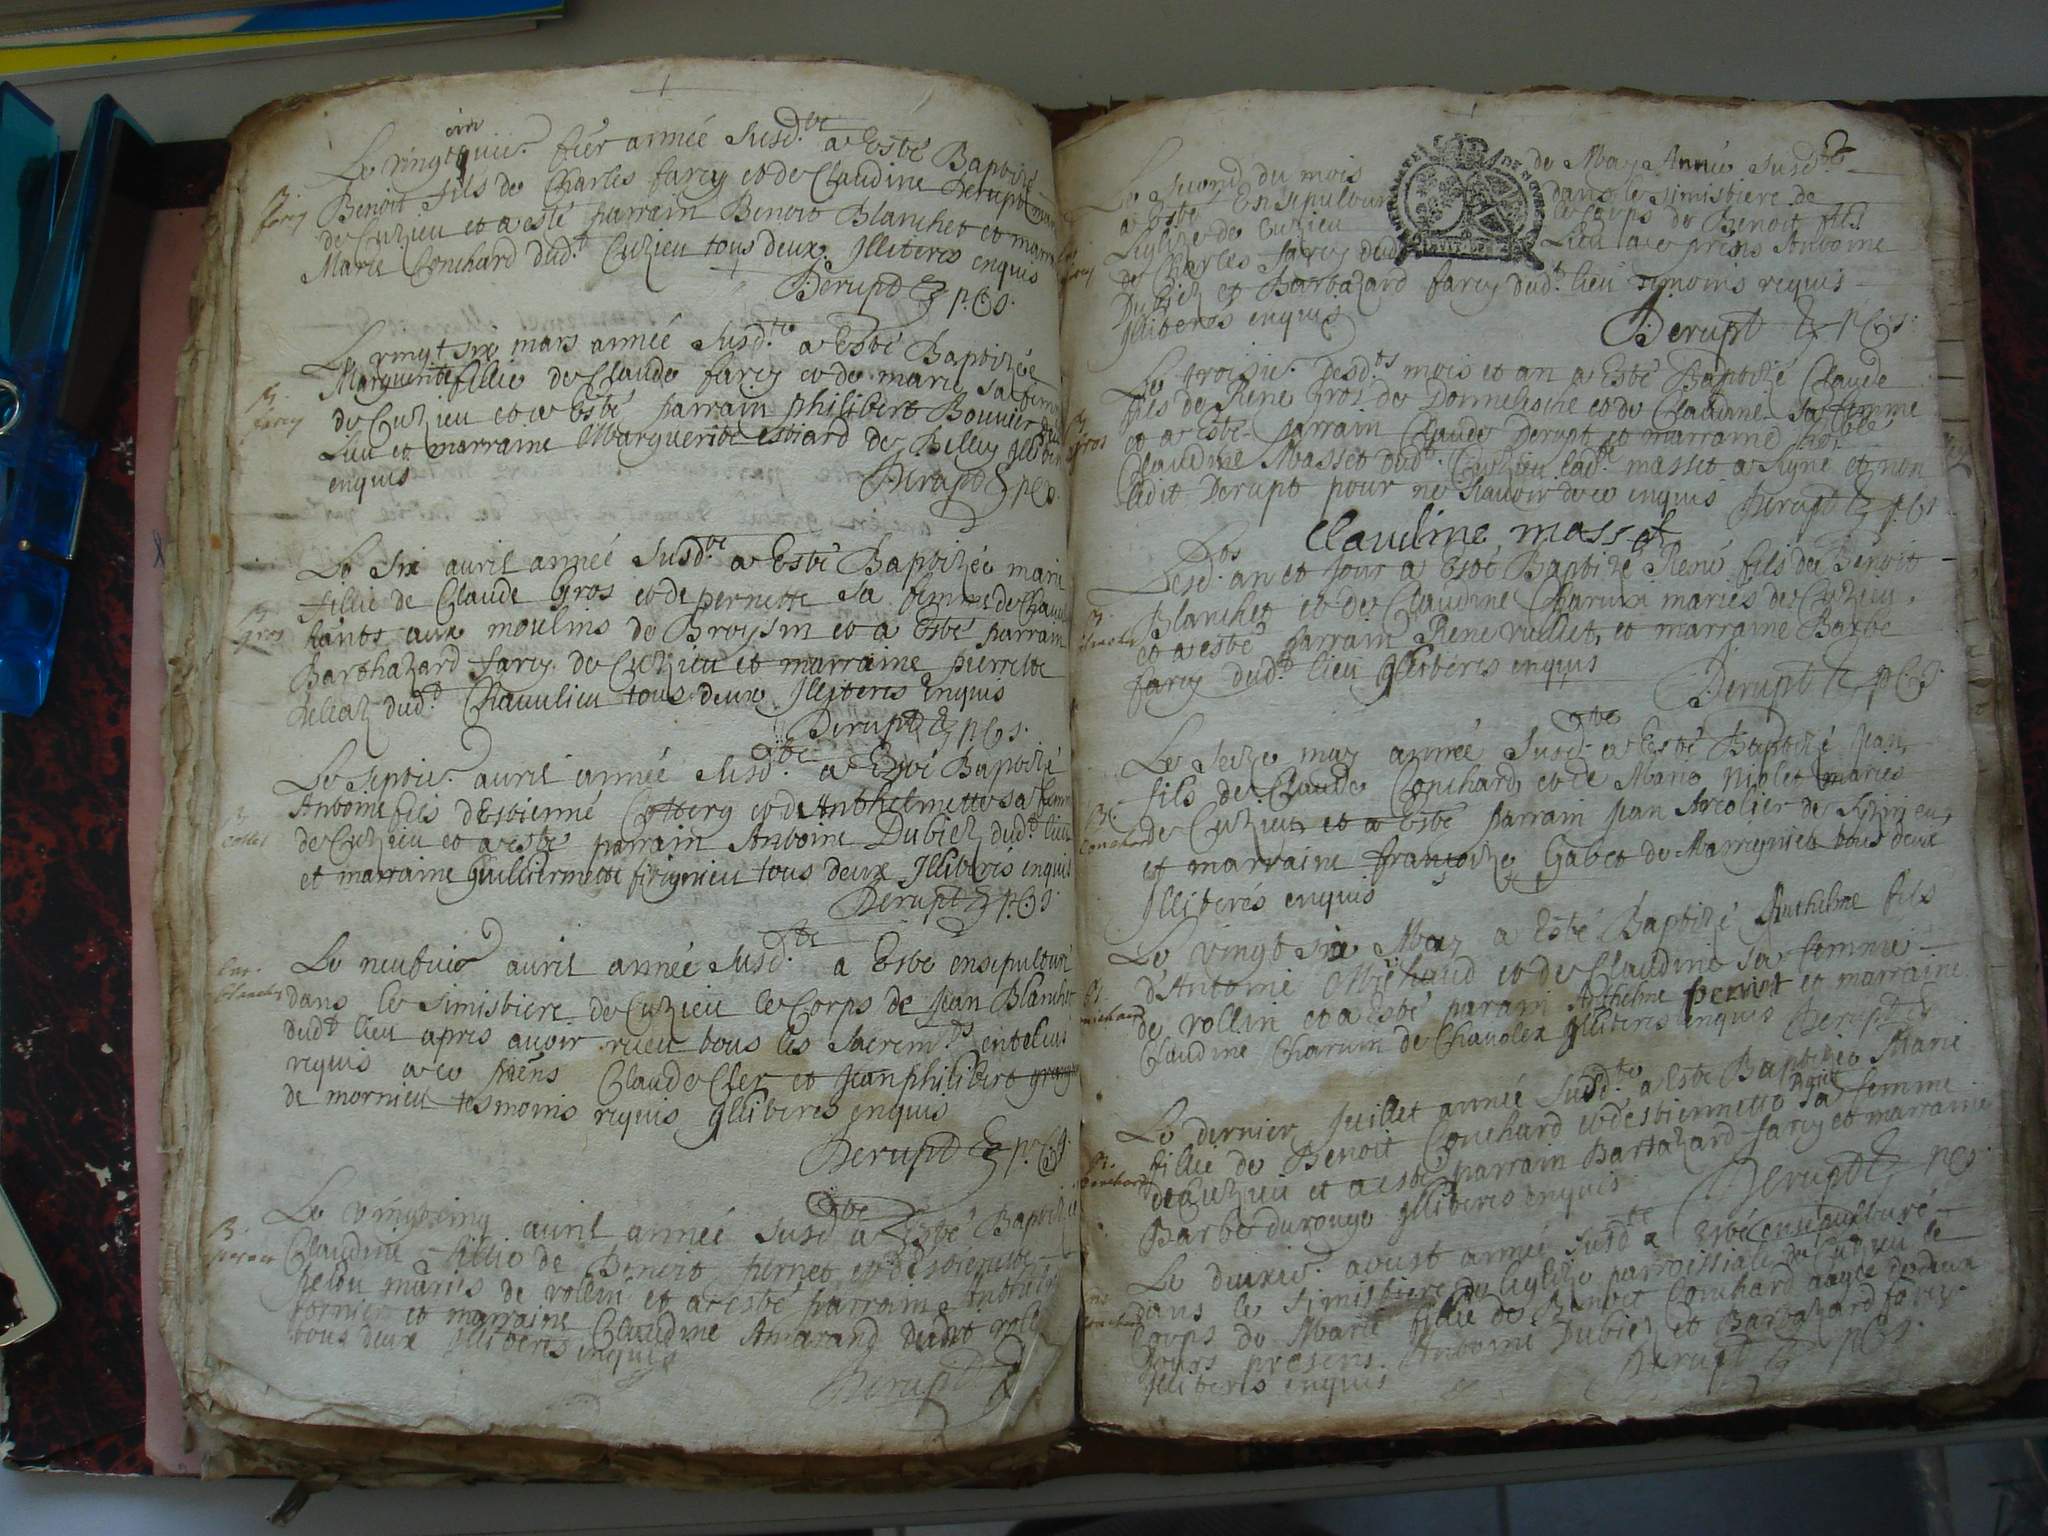 Le vingt cin fier année susd.te a esté Baptizé
B. farcy
Benoit fils de Charles farcy et de Claudine Derupt
de Cuzieu et a esté parrain Benoit Blanchet et
Marie Conchard dud.t Cuzieu tous deux Illiteres enquis
Derupt p.C.s.
Le vingt six mars année susd.te a esté Baptizée
Marguerite fillie de Claude farcy et de marie sa
B. farcy
de Cuzieu et a esté parrain philibert Bouvier
Lieu et marraine Marguerite estiard de Billiey
enquis
Derupt p.C.s.
Le six avril année susd.te a esté Baptizée marie
fillie de Claude Gros et de pernette sa femme de
B. gros
hants aux moulins de Broyssin et a esté parrain
Barthazard farcy de Cuzieu et marraine pierrette
dud.t Chavulieu tous deux Illiteres enquis
Derupt p.C.s.
Le septie. avril année susd.te a esté Baptizé
Antoine fils d'Estienne Cottery et de Anthelmette sa
de Cuzieu et a esté parrain Antoine Dubiez dud.t lieu
et marraine Guilliermette tous deux Illiteres enquis
Derupt p.C.s.
Le neufuie. avril année susd.te a esté ensepulturé
dans le simistiere de Cuzieu le Corps de Jean Blanchet
dud.t lieu apres avoir receu tous les sacrem.ts
requis avec prens Claude Clez et Jean philibert
de mornieu tesmoins requis Illiteres enquis
Derupt p.C.s.
Le vingt cinq avril année susd.te a esté Baptizée
Claudine fillie de Benoit pernet et
mariés de rollin et a esté parrain
et marraine Claudine Amarand dudit
tous deux Illiteres enquis
Derupt
Le second du mois de May Année susd.te
a esté Ensepulturé dans le simistiere de
L'eglize de Cuzieu le Corps de Benoit fils
de Charles farcy dud. lieu avec prens Antoine
Dubiez et Bartazard farcy dud.t lieu temoins requis
Illiteres enquis
Derupt p.C.s.
Le troisie. desd.ts mois et an a esté Baptizé Claude
fils de René Gros de et de Claudine sa femme
B. gros
et a esté parrain Claude Derupt et marraine
Claudine Masset dud.t Cuzieu lad.te masset a signé et non
ledit Derupt pour ne sçavoir de ce enquis
Derupt p.C.s.
Claudine masset
Lesd.ts an et jour a esté Baptizé René fils de Benoit
Blanchet et de Claudine Charvin mariés de Cuzieu
et a esté parrain René vullet, et marraine Barbe
farcy dud.t lieu Illiteres enquis
Derupt p.C.s.
Le seize may année susd.te a esté Baptizé Jean
fils de Claude Conchard et de Marie niolet mariés
B. Conchard
de Cuzieu et a esté parrain Jean
et marraine françoize Gabet de tous deux
Illiterés enquis
Le vingt six May a esté Baptizé Anthelme fils
d'Antoine Michaud et de Claudine sa femme
B. michaud
de rollin et a esté parain Anthelme pernot et marraine
Claudine Charvin de Illiteres enquis Derupt
Le dernier Juillet année susd.te a esté Baptizée Marie
fillie de Benoit Conchard et d'estiennette sa femme
B. Conchard
de Cuzieu et a esté parrain Bartazard farcy et marraine
Barbe durouge Illiteres enquis
Derupt p.C.s.
Le deuxie. aoust année susd.te a esté ensepulturé
dans le simistiere de l'eglize parroissiale de Cuzieu le
Corps de Marie fillie de Benoit Conchard aagée de deux
Jours presens Antoine Dubiez et Bartazard farcy
Illiteres enquis
Derupt p.C.s.